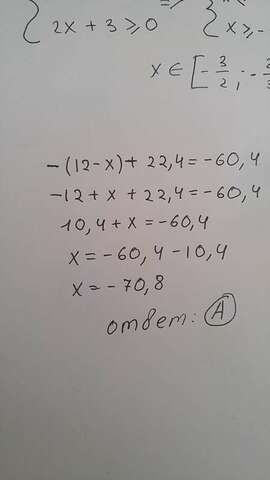 2x + 3 ≥ 0
x ≥ -
x ∈ [-3/2 ; -
-(12-x)+ 22,4=-60,4
-12+x+22,4=-60,4
10,4+x=-60,4
x=-60,4-10,4
x=-70,8
ответ: А